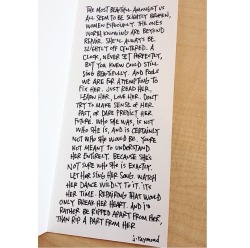 THE MOST BEAUTIFUL AMONGST US
ALL SEEM TO BE SLIGHTLY BROKEN,
WOMEN ESPECIALLY. THE ONES
WORTH KNOWING ARE BEYOND
REPAIR. SHE'LL ALWAYS BE
SLIGHTLY OFF CENTERED. A
CLOCK, NEVER SET PERFECTLY,
BUT YOU KNEW COULD STILL
SING BEAUTIFULLY. AND FOOLS
WE ARE FOR ATTEMPTING TO
FIX HER. JUST READ HER,
LEARN HER, LOVE HER. DON'T
TRY TO MAKE SENSE OF HER
PAST, OR DARE PREDICT HER
FUTURE. WHO SHE WAS, IS NOT
WHO SHE IS, AND IS CERTAINLY
NOT WHO SHE WOULD BE. YOU'RE
NOT MEANT TO UNDERSTAND
HER ENTIRELY. BECAUSE SHE'S
NOT SURE WHO SHE IS EXACTLY.
LET HER SING HER SONG. WATCH
HER DANCE WILDLY TO IT. IT'S
HER TIME. REPAIRING THAT WOULD
ONLY BREAK HER HEART. AND I'D
RATHER BE RIPPED APART FROM HER,
THAN RIP A PART FROM HER
j. Raymond